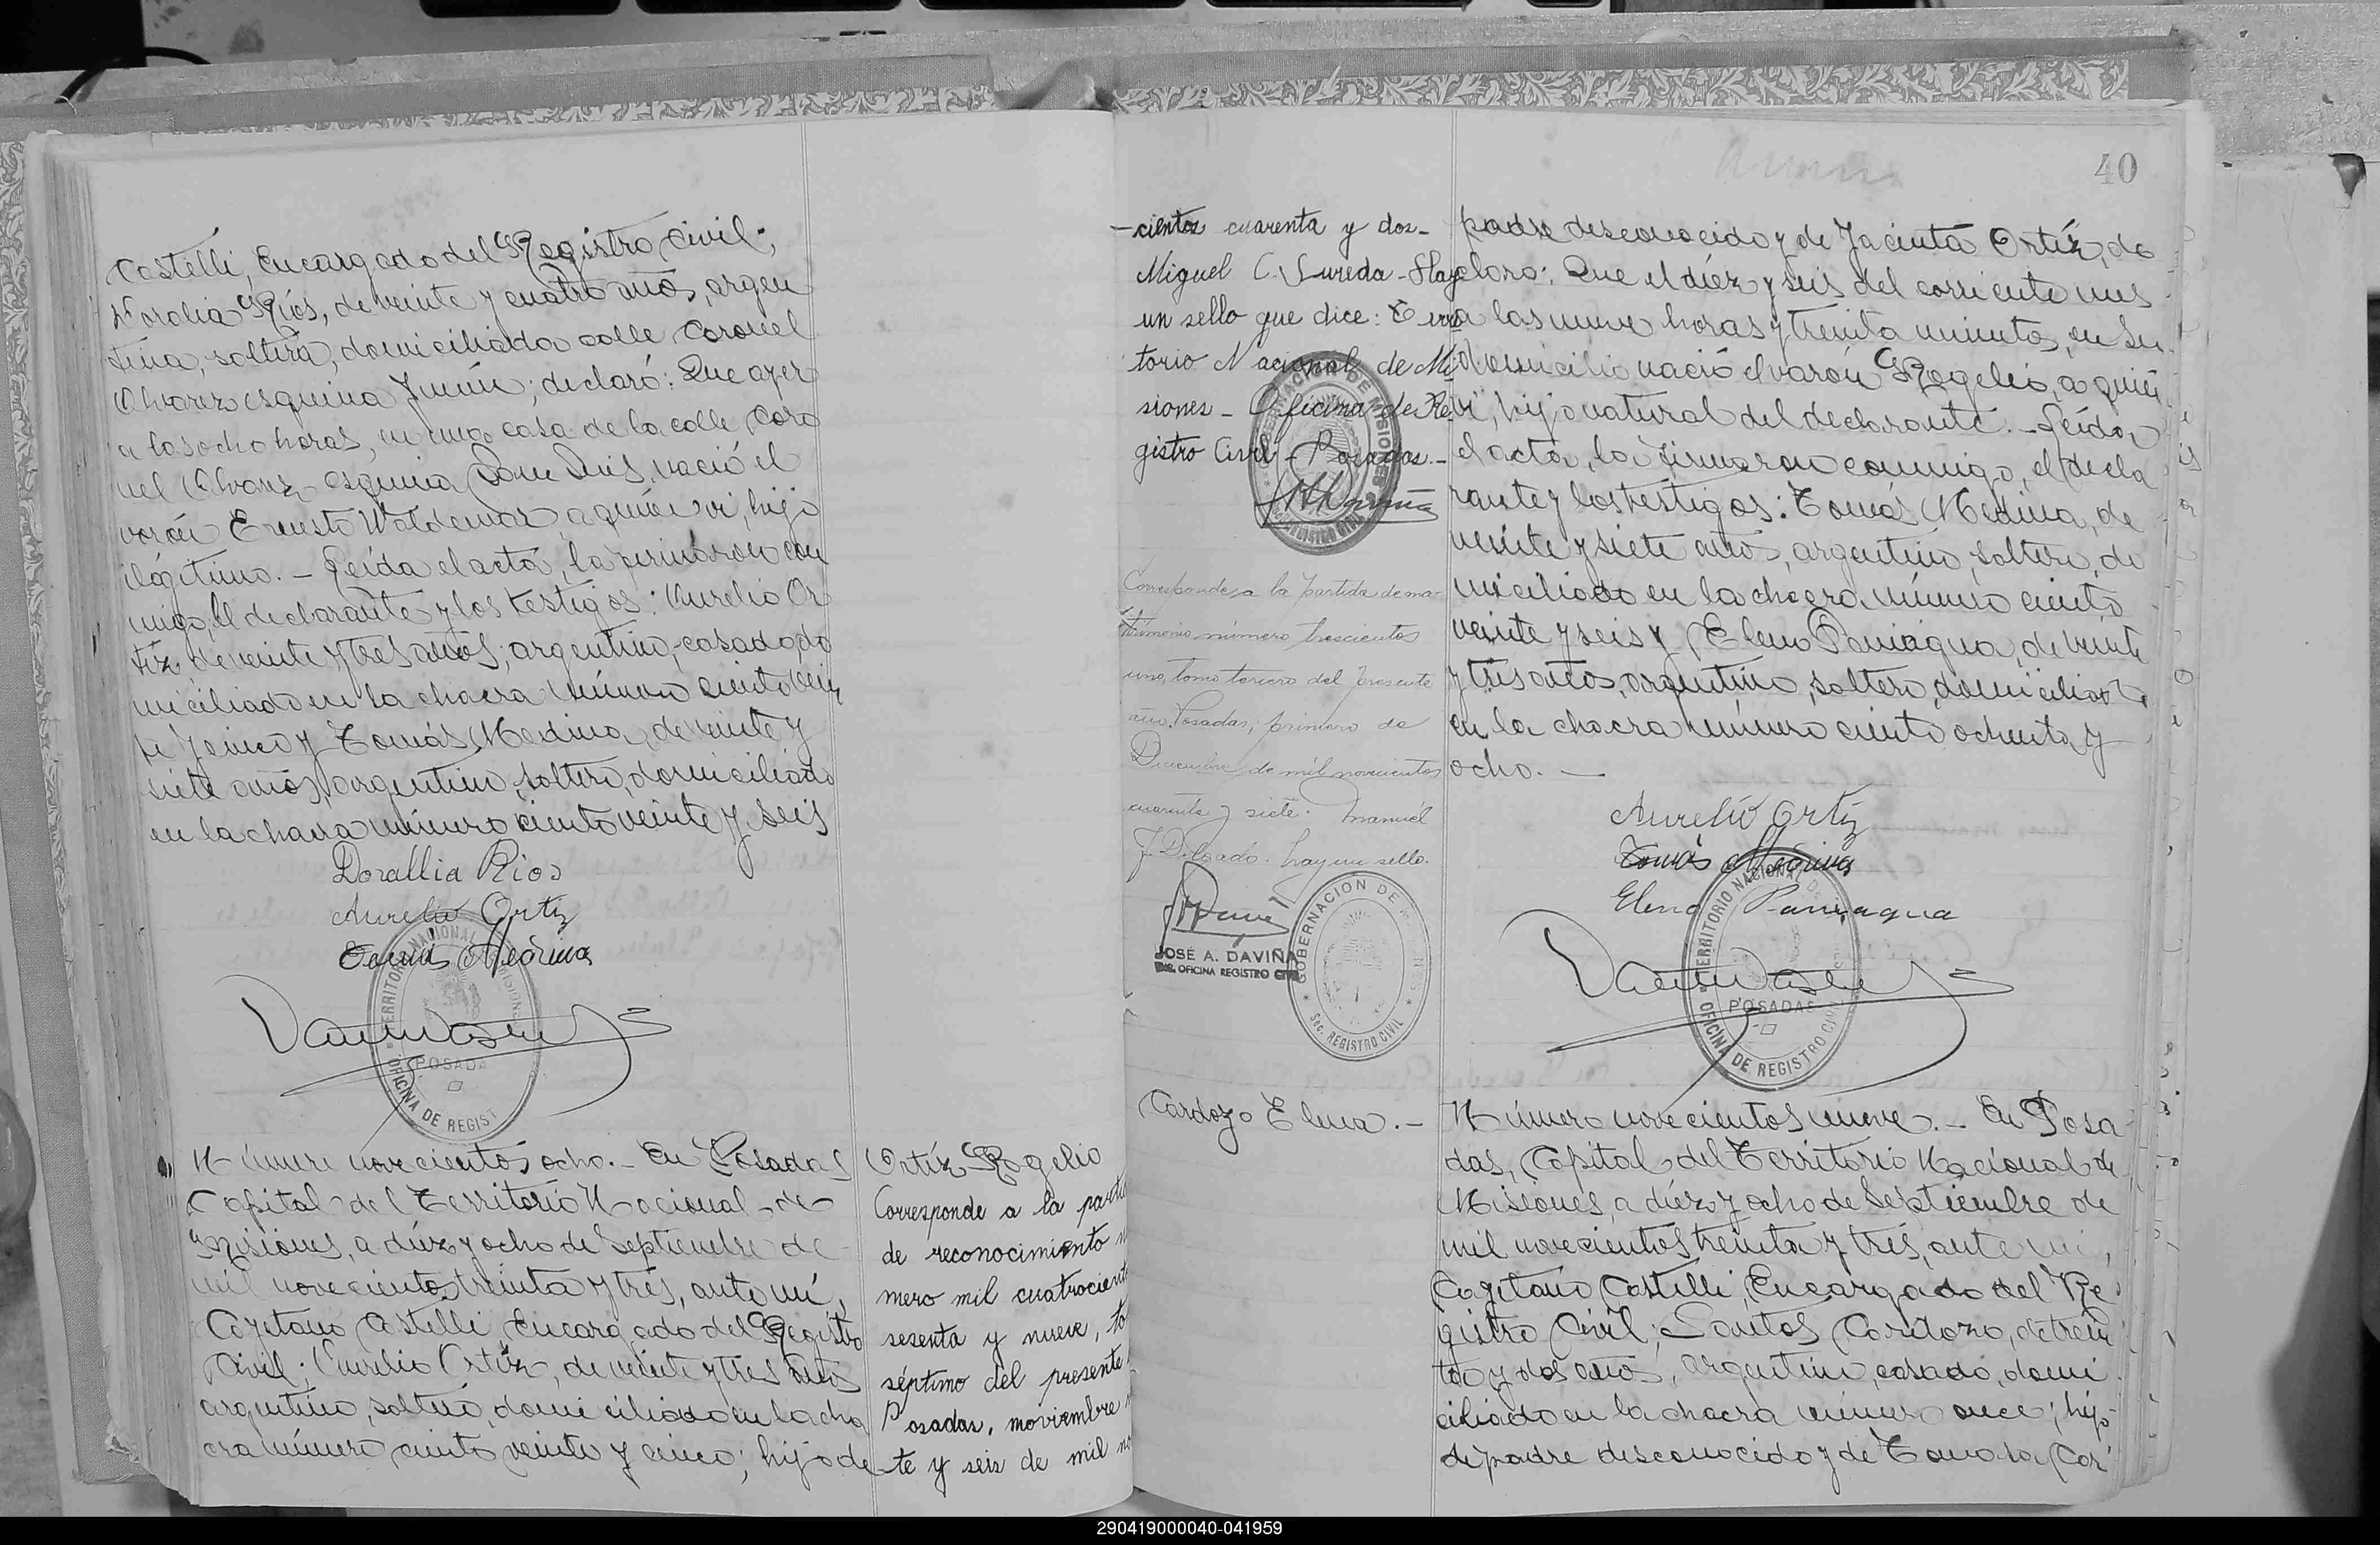 Castelli, Encargado del Registro Civil;
Doralia Ríos, de veinte y cuatro años, argen
tina, soltera, domiciliada calle Coronel
Alvarez esquina Junín; declaró: Que ayer
a las ocho horas, en una casa de la calle Coro
nel Alvarez esquina San Luis, nació el
varón Ernesto Waldemar, a quién vi, hijo
ilegítimo. - Leída el acta, la firmaron con
migo, el declarante y los testigos: Aurelio Or
tíz, de veinte y tres años, argentino, casado, do
miciliado en la chacra número ciento vein
te y cinco y Tomás Medina, de veinte y
siete años, argentino, soltero, domiciliado
en la chacra número ciento veinte y seis
Dorallia Rios
Aurelio Ortiz
Tomás Medina
TERRITORIO NACIONAL MISIONES
POSADA
OFICINA DE REGIST
Número novecientos ocho. - En Posadas
Capital del Territorio Nacional de
Misiones, a diéz y ocho de Septiembre de
mil novecientos treinta y trés, ante mí,
Cayetano Castelli, Encargado del Registro
Civil; Aurelio Ortíz, de veinte y tres años
argentino, soltero, domiciliado en la cha
cra número ciento veinte y cinco; hijo de
Ortíz Rogelio
Corresponde a la parti
de reconocimiento n
mero mil cuatrocient
sesenta y nueve, to
séptimo del presente
Posadas, noviembre
te y seis de mil no
40
-cientos cuarenta y dos-
Miguel C. Sureda - Hay
un sello que dice: Terri
torio Nacional de Mi
siones - Oficina de Re
gistro Civil - Posadas.-
GOBERNACION DE MISIONES
REGISTRO CIVIL
Corresponde a la partida de ma-
trimonio número trescientos
uno, tomo tercero del presente
año. Posadas, primero de
Diciembre de mil novecientos
cuarenta y siete. Manuel
J. Delgado. hay un sello.
JOSÉ A. DAVIÑA
ENC. OFICINA REGISTRO CIVIL
GOBERNACION DE
Sec. REGISTRO CIVIL
Cardozo Elena.-
padre desconocido y de Jacinta Ortíz, de
claro: Que el diéz y seis del corriente mes
a las nueve horas y treinta minutos, en su
domicilio nació el varón Rogelio, a quién
vi, hijo natural del declarante. - Leída
el acta, la firmaron conmigo, el decla
rante y los testigos: Tomás Medina, de
veinte y siete años, argentino, soltero, do
miciliado en la chacra número ciento
veinte y seis y Eleno Paniagua, de veinte
y trés años, argentino, soltero, domiciliado
en la chacra número ciento ochenta y
ocho. -
Aurelio Ortiz
Tomás Medina
Eleno Paniagua
TERRITORIO NACIONAL DE
POSADAS
OFICINA DE REGISTRO CIVIL
Número novecientos nueve. - En Posa
das, Capital del Territorio Nacional de
Misiones, a diéz y ocho de Septiembre de
mil novecientos treinta y trés, ante mí,
Cayetano Castelli, Encargado del Re
gistro Civil; Santos Cardozo, de trein
ta y dos años, argentino, casado, domi
ciliado en la chacra número once; hijo
de padre desconocido y de Tomasa Car
290419000040-041959